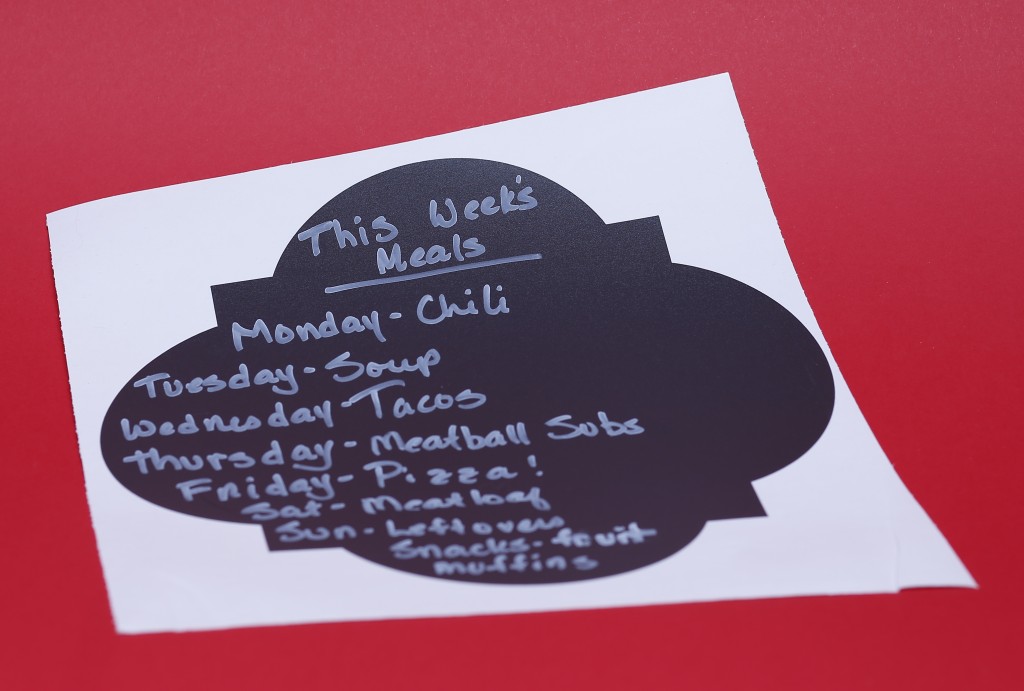 This Week's
Meals
Monday - Chili
Tuesday - Soup
Wednesday - Tacos
Thursday - Meatball Subs
Friday - Pizza!
Sat - Meatloaf
Sun - Leftovers
Snacks - fruit
muffins